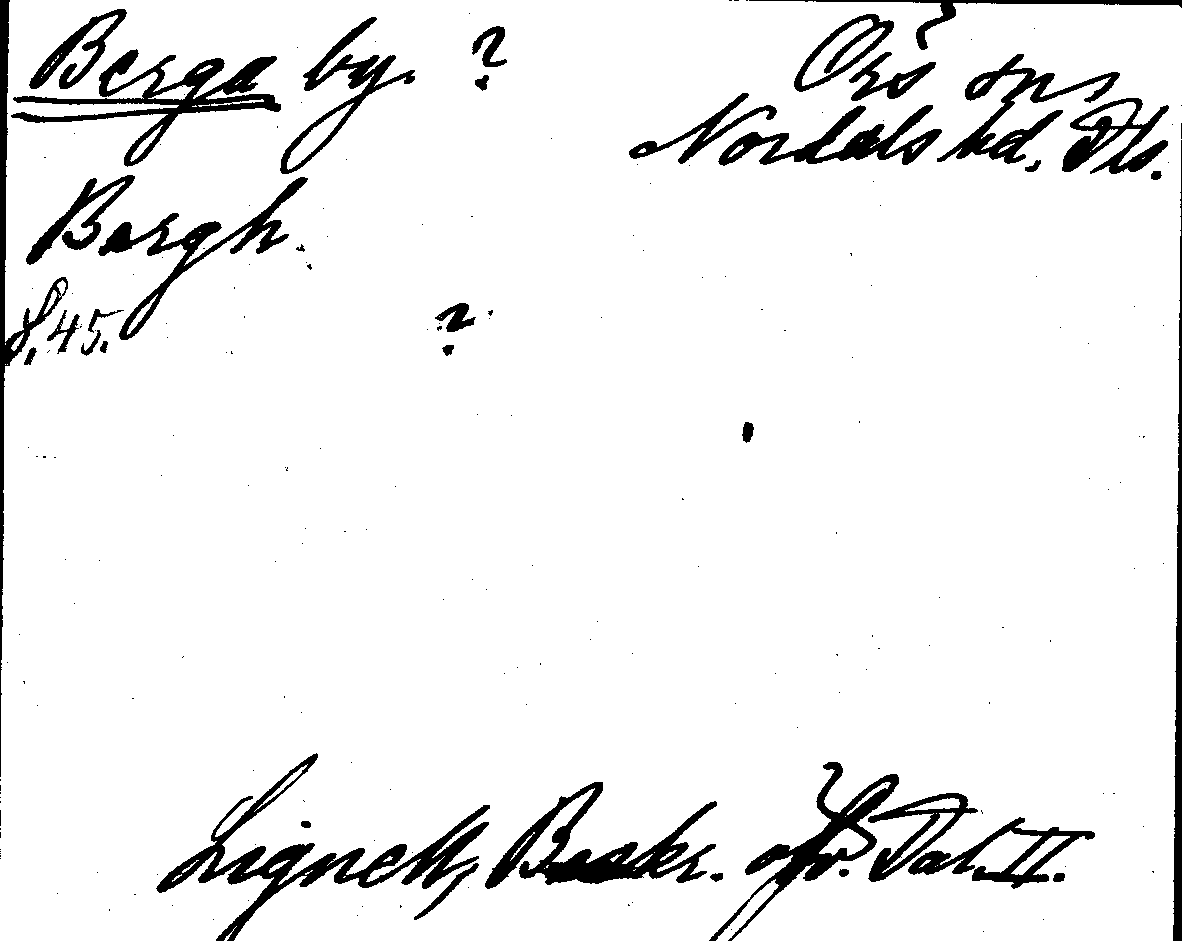 Berga by. ?
Örs sn,
Nordals hd. Dls.
Bergh.
S. 45. ?
Lignell, Beskr. öfv. Dal. II.